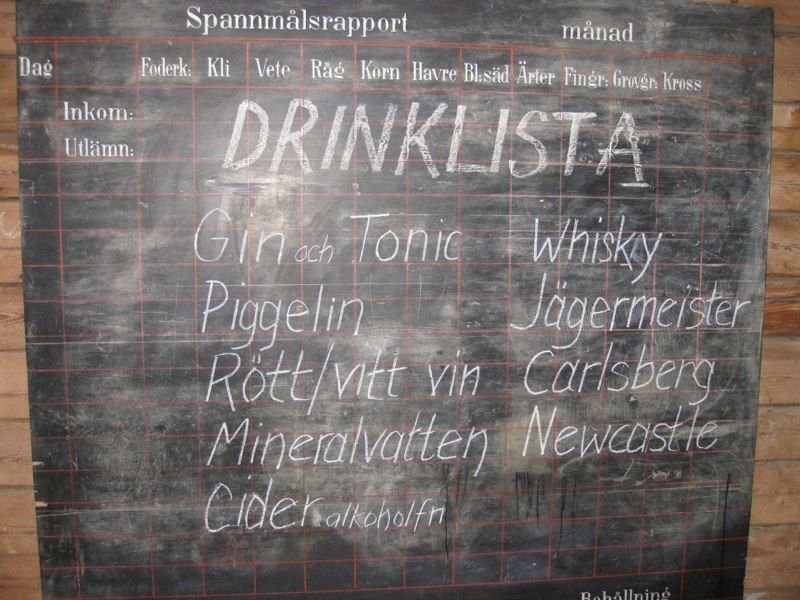 Spannmålsrapport månad
Dag Foderk: Kli Vete Råg Korn Havre Bl:säd Ärter Fingr: Grovgr: Kross
Inkom:
Utlämn:
DRINKLISTA
Gin och Tonic Whisky
Piggelin Jägermeister
Rött/vitt vin Carlsberg
Mineralvatten Newcastle
Cider alkoholfri
Behållning